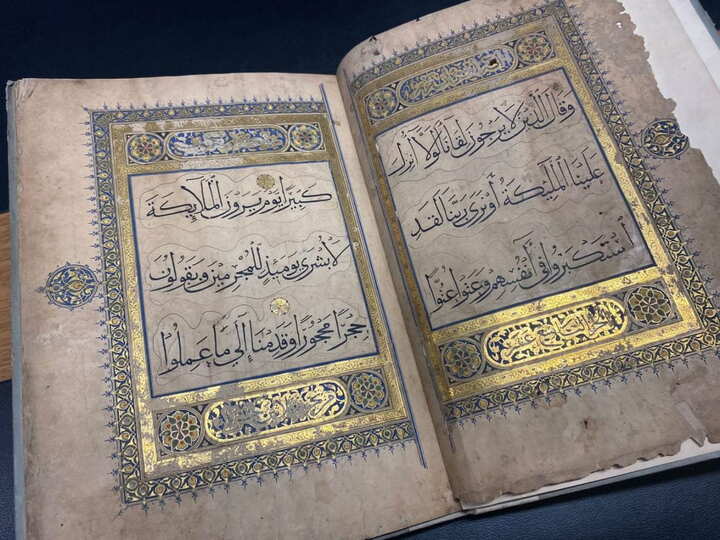 وَقَالَ الَّذِينَ لَا يَرْجُونَ لِقَاءَنَا لَوْلَا أُنْزِلَ
عَلَيْنَا الْمَلٰئِكَةُ أَوْ نَرَى رَبَّنَا لَقَدِ
اسْتَكْبَرُوا فِي أَنْفُسِهِمْ وَعَتَوْا عُتُوًّا
كَبِيرًا يَوْمَ يَرَوْنَ الْمَلَائِكَةَ
لَا بُشْرَى يَوْمَئِذٍ لِلْمُجْرِمِينَ وَيَقُولُونَ
حِجْرًا مَحْجُورًا وَقَدِمْنَا إِلَى مَا عَمِلُوا